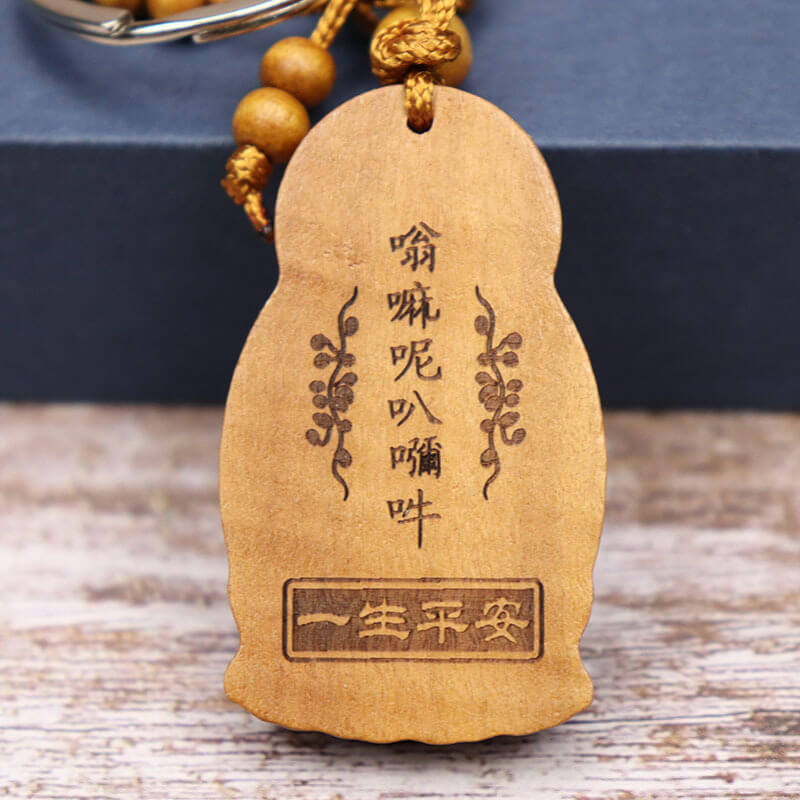 嗡嘛呢叭嘛吽
一生平安